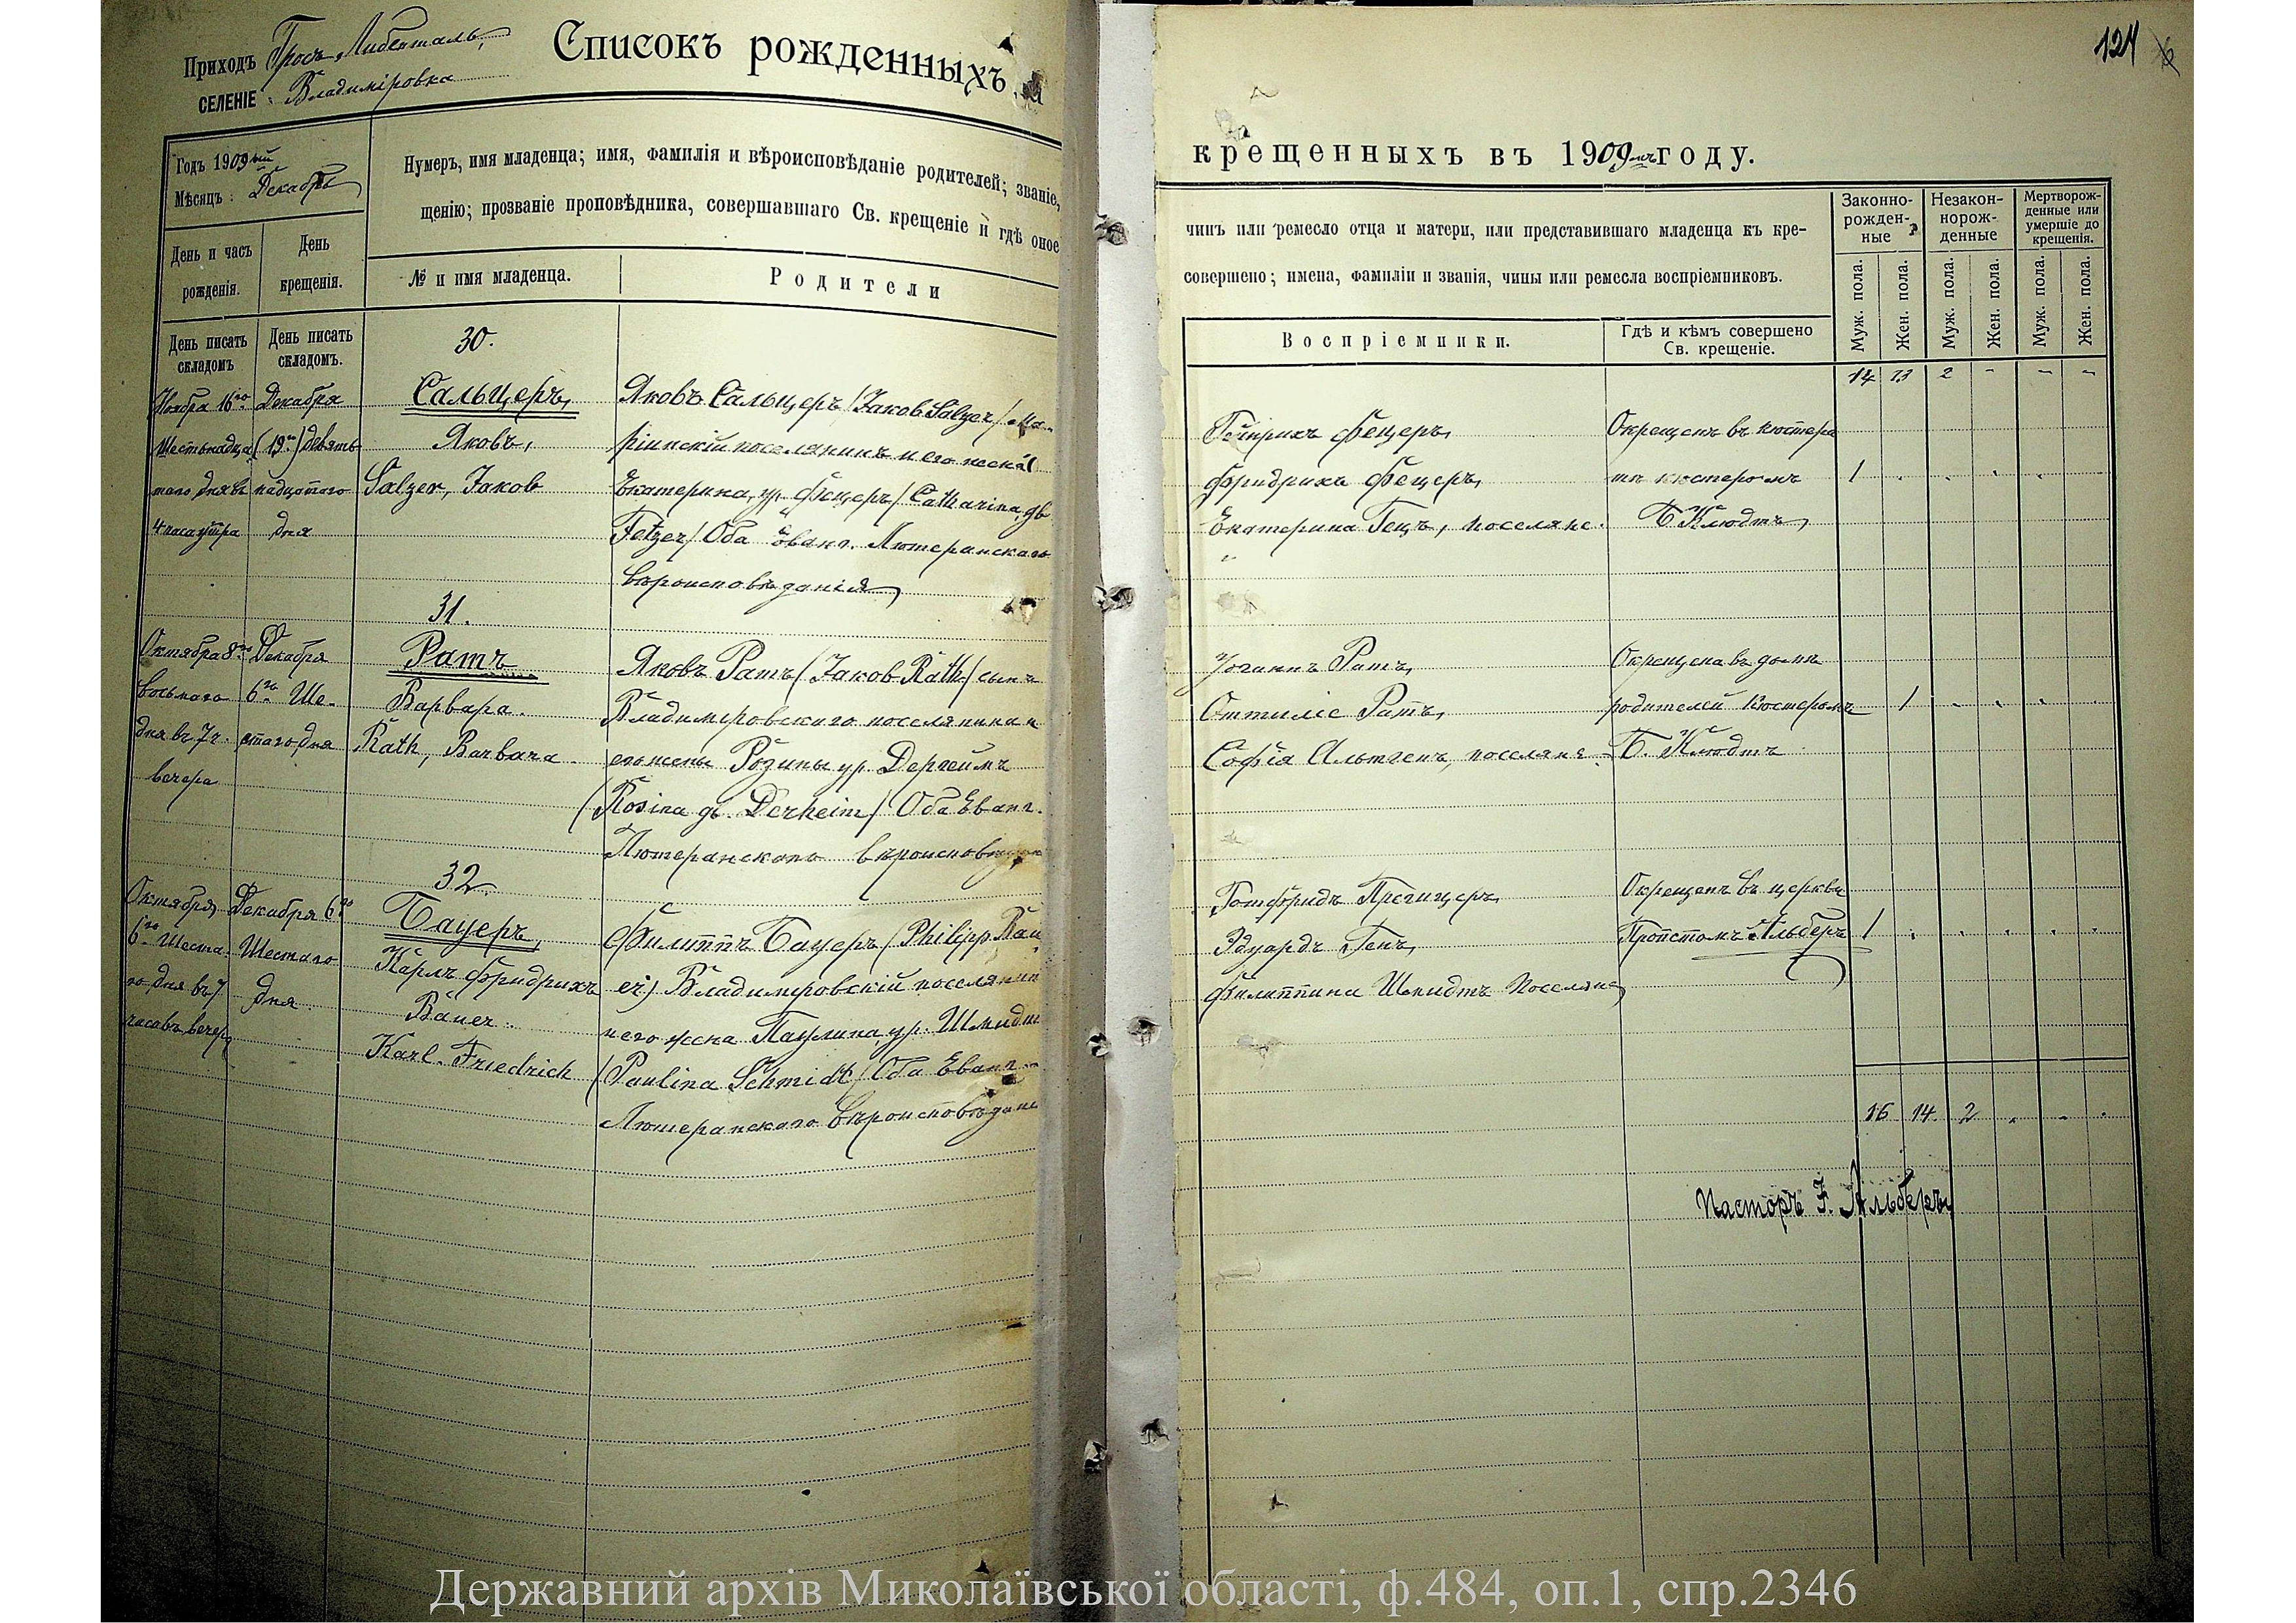 Приходъ Гросъ Либенталь,
СЕЛЕНІЕ: Владиміровка
Списокъ рожденныхъ и
Годъ 1909ый
Мѣсяцъ: Декабрь
Нумеръ, имя младенца; имя, фамилія и вѣроисповѣданіе родителей; званіе,
щенію; прозваніе проповѣдника, совершавшаго Св. крещеніе и гдѣ оное
День и часъ рожденія.
День крещенія.
№ и имя младенца.
Родители
День писать складомъ
День писать складомъ.
30.
Ноября 16го
Шестьнадца
таго дня въ
4 часа утра
Декабря
(19го) девять
надцатого
дня
Сальцеръ,
Яковъ,
Salzer, Jakob
Яковъ Сальцеръ /Jakob Salzer/ Ма-
ріинскій поселянинъ и его жена
Екатерина, ур. Фецеръ /Catharina, gb
Fetzer/ Оба Еванг. Лютеранскаго
вѣроисповѣданія,
31.
Октября 8го
восьмого
дня въ 7 ч.
вечера
Декабря
6го Ше-
стого дня
Ратъ
Варвара.
Rath, Barbara.
Яковъ Ратъ /Jakob Rath/ сынъ
Владиміровского поселянина и
его жены Розины ур. Дергеимъ
/Rosina gb. Derheim/ Оба Еванг.
Лютеранского вѣроисповѣдан
32.
Октября
6го Шеста-
го дня въ 7
часовъ вечер
Декабря 6го
Шестаго
дня.
Бауеръ,
Карлъ Фридрихъ
Bauer.
Karl. Friedrich
Филиппъ Бауеръ /Philipp Bau
er/ Владиміровскій поселянин
и его жена Паулина, ур. Шмидт
/Paulina Schmidt/ Оба Еванг.
Лютеранского вѣроисповѣдан
124
крещенныхъ въ 1909мъ году.
чинъ или ремесло отца и матери, или представившаго младенца къ кре-
совершено; имена, фамиліи и званія, чины или ремесла воспріемниковъ.
Воспріемники.
Гдѣ и кѣмъ совершено Св. крещеніе.
Законно-рожден-ные
Незакон-норож-денные
Мертворож-денные или умершіе до крещенія.
Муж. пола.
Жен. пола.
Муж. пола.
Жен. пола.
Муж. пола.
Жен. пола.
14 13 2 - - -
Гейнрихъ Фецеръ,
Фридрихъ Фецеръ,
Екатерина Гецъ, поселяне.
Окрещенъ въ кюстера
тѣ кюстеромъ
Б. Клюдтъ,
1
Іоганнъ Ратъ,
Оттиліе Ратъ,
Софія Альтгенъ, поселяне.
Окрещена въ домѣ
родителей Кюстеромъ
Б. Клюдтъ
1
Готфридъ Прегицеръ,
Эдуардъ Генъ,
Филиппина Шмидтъ Поселяне,
Окрещенъ въ церкви
Пропстомъ Альберъ
1
16 14 2
Пасторъ F. Альберъ
Державний архів Миколаївської області, ф.484, оп.1, спр.2346